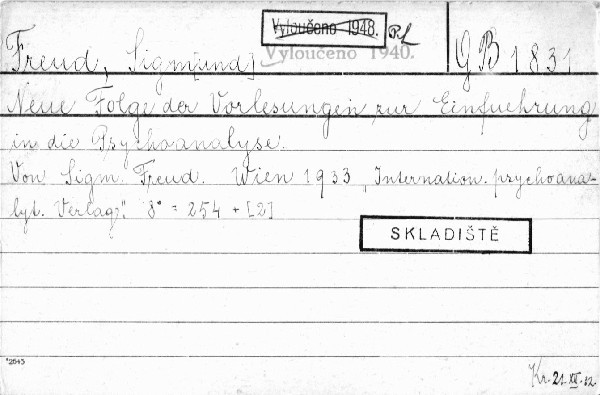 Vyloučeno 1948.
Vyloučeno 1940.
Freud, Sigm[und]
GB 1831
Neue Folge der Vorlesungen zur Einfuehrung
in die Psychoanalyse.
Von Sigm. Freud. Wien 1933 „Internation. psychoana-
lyt. Verlag“. 8° = 254 + [2]
SKLADIŠTĚ
*2643
Kr. 21. XII.